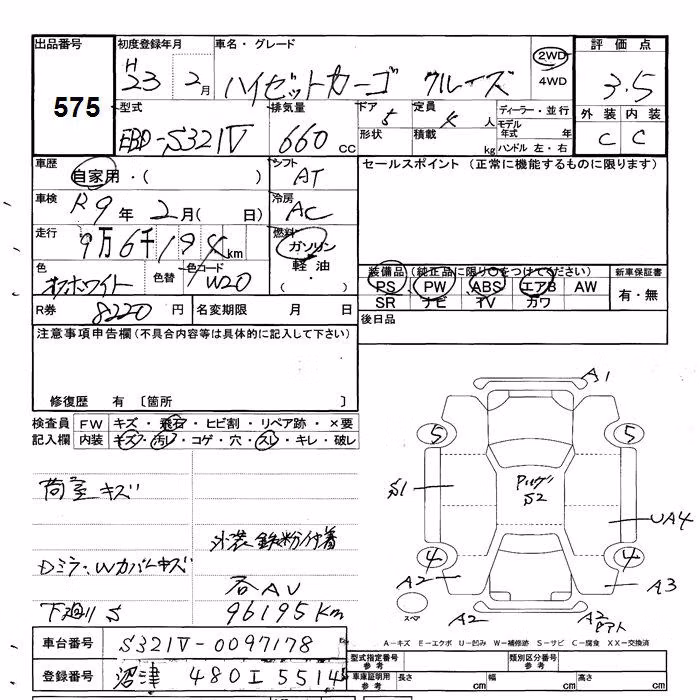 出品番号 初度登録年月 車名・グレード 2WD 4WD 評価点
575 H23 2月 ハイゼットカーゴ クルーズ 3.5
型式 排気量 ドア 5 定員 4 人 ディーラー・並行 外装 内装
EBD-S321V 660 cc 形状 積載 kg モデル年式 年 ハンドル 左・右 C C
車歴 自家用・( ) シフト AT セールスポイント (正常に機能するものに限ります)
車検 R9年 2月( 日) 冷房 AC
走行 9万6千194km 燃料 ガソリン 軽油 ・( )
色 オフホワイト 色替 色コード W20
装備品 (純正品に限り○をつけてください) 新車保証書
PS PW ABS エアB AW 有・無
SR ナビ TV カワ
R券 8220 円 名変期限 月 日 後日品
注意事項申告欄 (不具合内容等は具体的に記入して下さい)
修復歴 有 〔箇所 〕
検査員記入欄 FW キズ・飛石・ヒビ割・リペア跡・×要
内装 キズ・汚レ・コゲ・穴・スレ・キレ・破レ
荷室キズ
外装鉄粉付着
Dミラー、Wカバーキズ
各AU
下廻りS 96195Km
A1
5 5
S1
S2
UA4
4 4
A2 A3
スペア A2 A2
A-キズ E-エクボ U-凹み W-補修跡 S-サビ C-腐食 XX-交換済
車台番号 S321V-0097178
登録番号 沼津 480 エ 5514
型式指定番号 参考 類別区分番号 参考
車庫証明用 参考 長さ cm 幅 cm 高さ cm